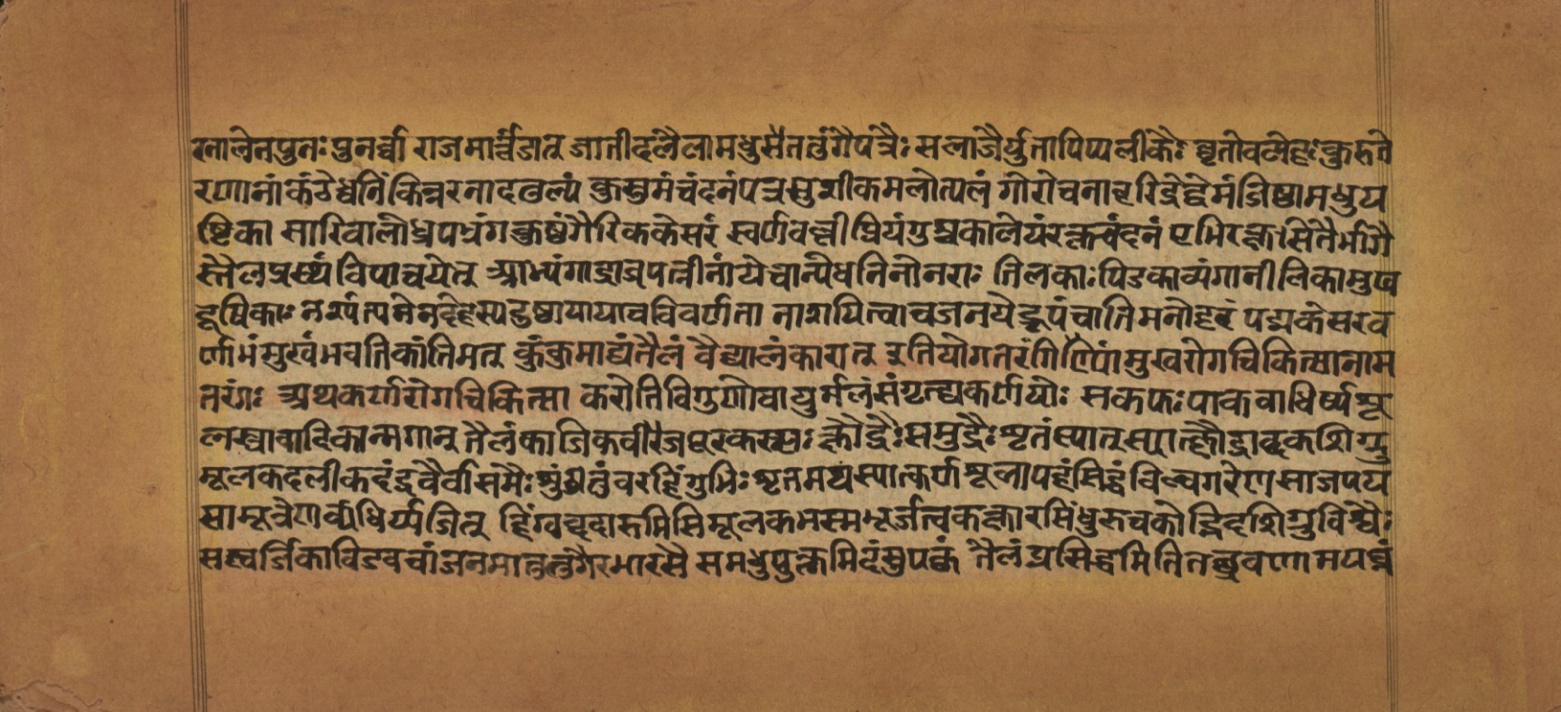 स्तालेनपुनःपुनर्च्चा राजमार्त्तंडात् जातीदलैलामधुसैततुंगैपत्रैः सलाजैर्युतापिप्पलीकैः धृतोवलेहःकुरुते
रणानांकंठेध्वनिंकिन्नरनादतुल्यं कुसुमंचंदनंपत्रमुशीकमलोत्पलं गोरोचनाहरिद्रेद्वेमंजिष्ठामधुय
ष्टिका सारिवालोध्रपत्रंगकुष्ठंगैरिककेसरं स्वर्णवल्लीप्रियंगुश्चकालेयंरक्तचंदनं एभिरक्षासितैर्भागै
स्तैलप्रस्थंविपाचयेत् अभ्यंगाद्राजपत्नीनांयेचान्येधनिनोनराः तिलकाःपिडकाव्यंगानीलिकामुख
दूषिकाः नश्यंत्यनेनदेहस्यदुष्ठायायाचविवर्णता नाशयित्वाचजनयेद्रूपंचातिमनोहरं पद्मकेसरव
र्णाभंमुखंभवतिकांतिमत् कुंकुमाद्यंतैलं वैद्यालंकारात् इतियोगतरंगिण्यांमुखरोगचिकित्सानाम
तरंगः अथकर्णरोगचिकित्सा करोतिविगुणोवायुर्मलंसंगृह्यकर्णयोः सकफःपाकबाधिर्यशू
लस्त्रावादिकान्गदान् तैलंकांजिकबीजपूरकरसैः क्षौद्रैःसमुद्रैःशृतंस्यात्स्यात्क्षौद्रार्द्रकशिग्रु
मूलकदलीकंदद्रवैर्वासमैः शुंठीतुंवरहिंगुभिःशृतमथस्यात्कर्णशूलापहंसिद्धंविल्वगरेणसाजपय
सामूत्रेणबाधिर्यजित् हिंग्वब्ददारुमिसिमूलकभस्मभूर्जत्वक्क्षारसिंधुरुचकोद्भिदशिग्रुविश्वैः
सत्स्वर्जिकाविडवचांजनमातुलुंगैरंभारसै समधुशुक्तमिदंसुपक्वं तैलंप्रसिद्धमितितच्छ्रवणामयघ्नं